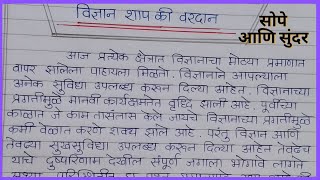 विज्ञान शाप की वरदान
सोपे
आणि सुंदर
आज प्रत्येक क्षेत्रात विज्ञानाचा मोठ्या प्रमाणात
वापर झालेला पाहायला मिळतो. विज्ञानाने आपल्याला
अनेक सुविधा उपलब्ध करून दिल्या आहेत. विज्ञानाच्या
प्रगतीमुळे मानवी कार्यक्षमतेत वृद्धि झाली आहे. पूर्वीच्या
काळात जे काम तासंतास केले जायचे विज्ञानाच्या प्रगतीमुळे
कमी वेळात करणे शक्य झाले आहे. परंतु विज्ञान आणि
तेवढ्या सुखसुविधा उपलब्ध करून दिल्या आहेत तेवढेच
याचे दुष्परिणाम देखील संपूर्ण जगाला भोगावे लागते